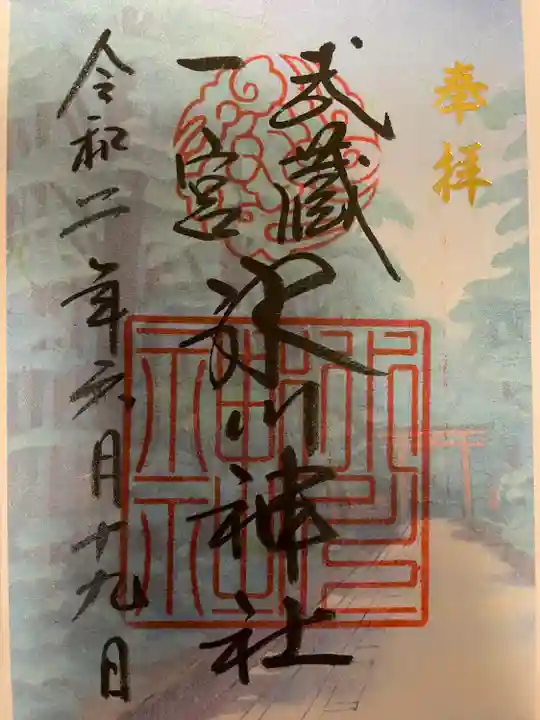 奉拝
武蔵
一宮
氷川神社
令和二年六月十九日